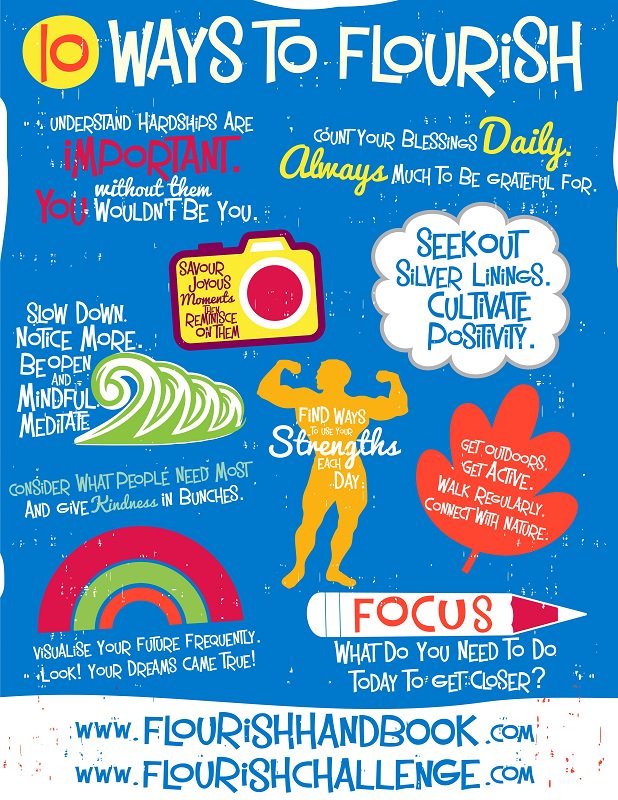 10 WAYS TO FLOURISH
UNDERSTAND HARDSHIPS ARE
IMPORTANT.
without them
YOU WOULDN'T BE YOU.
COUNT YOUR BLESSINGS Daily.
Always MUCH TO BE GRATEFUL FOR.
SAVOUR
JOYOUS
Moments
THEN
REMINISCE
ON THEM
SEEK OUT
SILVER LININGS.
CULTIVATE
POSITIVITY.
SLOW DOWN.
NOTICE MORE.
BE OPEN
AND
MINDFUL.
MEDITATE.
FIND WAYS
TO USE YOUR
Strengths
EACH
DAY.
GET OUTDOORS.
GET ACTIVE.
WALK REGULARLY.
CONNECT WITH NATURE.
CONSIDER WHAT PEOPLE NEED MOST
AND GIVE Kindness IN BUNCHES.
VISUALISE YOUR FUTURE FREQUENTLY.
LOOK! YOUR DREAMS CAME TRUE!
FOCUS
WHAT DO YOU NEED TO DO
TODAY TO GET CLOSER?
WWW.FLOURISHHANDBOOK.COM
WWW.FLOURISHCHALLENGE.COM